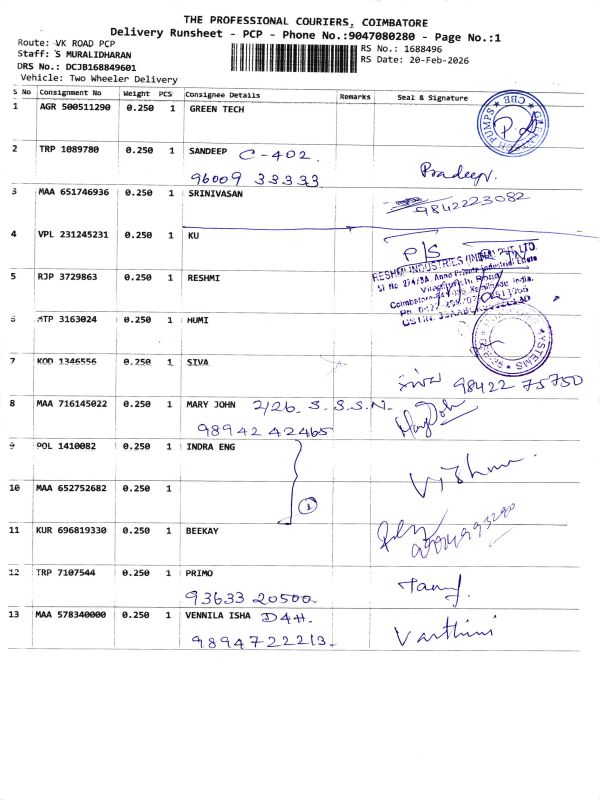 THE PROFESSIONAL COURIERS, COIMBATORE
Delivery Runsheet - PCP - Phone No.:9047080280 - Page No.:1
Route: VK ROAD PCP
Staff: S MURALIDHARAN
DRS No.: DCJB168849601
Vehicle: Two Wheeler Delivery
RS No.: 1688496
RS Date: 20-Feb-2026
S No Consignment No Weight PCS Consignee Details Remarks Seal & Signature
1 AGR 500511290 0.250 1 GREEN TECH
PUMPS * CBE
2 TRP 1089780 0.250 1 SANDEEP C-402.
96009 33333 Pradeep
3 MAA 651746936 0.250 1 SRINIVASAN
9842223082
4 VPL 231245231 0.250 1 KU
P/S
RESHMI INDUSTRIES (INDIA) PVT. LTD.
5 RJP 3729863 0.250 1 RESHMI
6 MTP 3163024 0.250 1 HUMI
SYSTEMS
7 KOD 1346556 0.250 1 SIVA
98422 75750
8 MAA 716145022 0.250 1 MARY JOHN 2/26. S.S.S.N.
98942 42465 Mary John
9 POL 1410082 0.250 1 INDRA ENG
10 MAA 652752682 0.250 1
11 KUR 696819330 0.250 1 BEEKAY
12 TRP 7107544 0.250 1 PRIMO
93633 20500
13 MAA 578340000 0.250 1 VENNILA ISHA D4H.
9894722213. Varthini